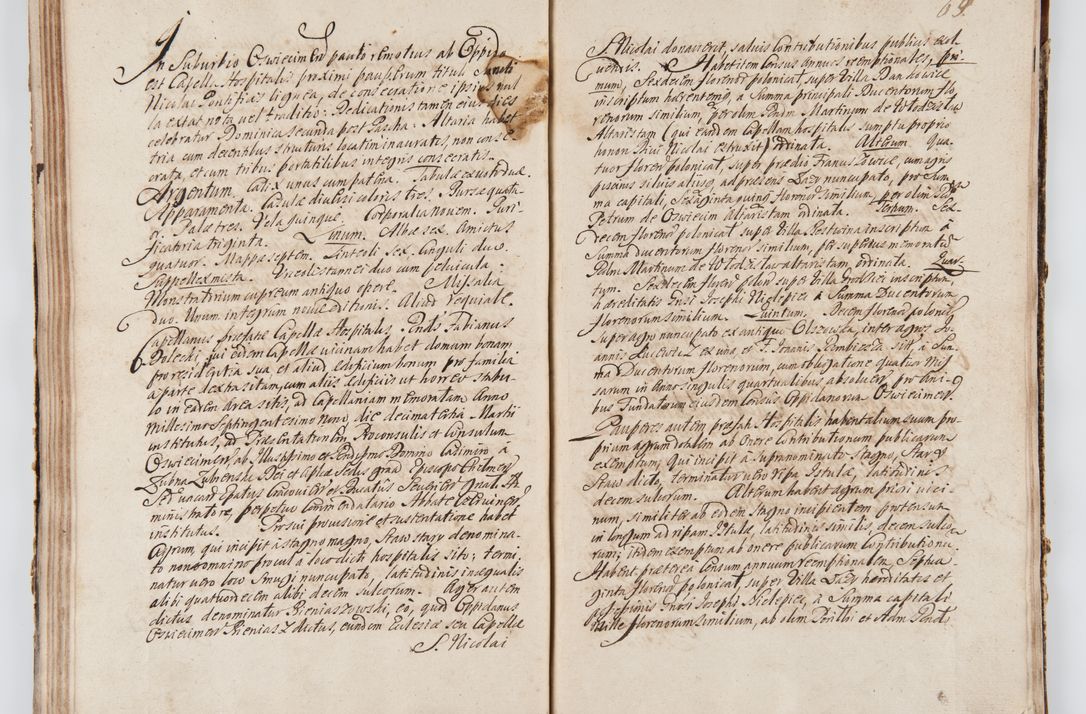 In Suburbio Oswiecimen pauto remotius ab Oppido
est Capella Hospitalis proximi pauperum tituli Sancti
Nicolai Pontificis lignea, de consecratione ipsius nul
la extat nota vel traditio. Dedicationis tamen eius dies
celebratur Dominica secunda post Pascha. Altaria habet
tria cum decentibus structuris locatim inauratis, non conse
crata, et cum tribus portatilibus integris consecratis.
Argentum. Calix unus cum patena. Tabulæ ex voto duæ.
Apparamenta. Casulæ diversi coloris tres. Bursæ quatu-
or. Palæ tres. Vela quinque. Corporalia novem. Puri-
ficatoria triginta. Linum. Albæ sex. Amictus
quatuor. Mappæ septem. Anteoli sex. Cinguli duo.
Suppellex mixta. Urceoli stannei duo cum pelvicula.
Monstratrium cupreum antiquo opere. Missalia
duo. Unum integrum novæ editionis. Aliud requiale.
Capellanus præfatæ Capellæ Hospitalis, Fabianus
qui eidem Capellæ vicinam habet domum bonam
pro residentia sua et aliud Edificium bonum pro familia
a parte dextra sitam, cum aliis Edificiis ut horreo stabu-
lo in eadem area sitis, ad Capellaniam memoratam Anno
millesimo septingentesimo nono, die decima tertia Martii
institutus, ad Præsentationem Proconsulis et Consulum
Oswiecimen, ab Illustrissimo et Rendissimo Domino Casimiro a
Lubna Lubienski Dei et Aplicæ Sedis gratia Episcopo Chelmen
Sede vacan Epatus Cracovien et Ducatus Severien Gnali Ad
ministratore, perpetuo Commendatario Abbate
institutus. Pro sui provisione et sustentatione habet
Agrum, qui incipit a stagno magno, Staw stary denomina-
to non procul a loco dicti hospitalis sito; termi
natur vero loco Smugi nuncupato, latitudinis inæqualis
alibi quatuordecim alibi decem sulcorum. Ager autem
dictus denominatur Bieniaszowski, eo, quod Oppidanus
Oswiecimen Bieniasz dictus, eundem Eclesiæ seu Capellæ
S. Nicolai
63.
S. Nicolai donaverit, salvis Contributionibus publicis exol
vendis. Habet item Census Annuos reemptionales, pri-
mum, Sexdecim florenor polonical super Villa
inscriptum habentem, a Summa principali Ducentorum flo
renorum similium, per olim Martinum de Wlodzislaw
Altaristam (qui eandem Capellam hospitalis sumptu proprio
honori Divi Nicolai extruxit) ordinata. Alterum qua-
tuor floren polonical, super prædio Franuszowice, cum agris
piscinis silvis aliisq, ad præsens Łazy nuncupato, pro Sum
ma capitali, Sexaginta quinq florenor similium, per olim
Petrum de Oswiecim Altaristam ordinata. Tertium. Sex
decem floren polonical super Villa Bestwina inscriptum a
Summa ducentorum florenor similium, per superius memoratum
Martinum de Wlodzislaw altaristam, ordinata. Quar-
tum. Sexdecim floren polon super Villa inscriptum,
hæreditatis Gnosi Josephi Nielepiec a Summa Ducentorum
florenorum similium. Quintum. Decem floreno polonic
super agro nuncupato ex antiquo Olszowska, inter agros Jo-
annis ex una, et Joannis sitis a Sum
ma Ducentorum florenorum, cum obligatione quatuor Mis
sarum in Anno singulis quartualibus absolven, pro Ani-
bus Fundatorum ejusdem Census Oppidanorum Oswiecimen.
Pauperes autem præfati Hospitalis habent alium suum pro
prium agrum dotalem ab Onere Contributionum publicarum
exemptum, qui incipit a supranominato stagno, Stary
Staw dicto, terminatur vero ripa Istulæ, latitudinis
decem sulcorum. Alterum habent agrum priori vici-
num, similiter ab eodem stagno incipientem protensum
in longum ad ripam Istulæ, latitudinis similis decem sulco-
rum; itidem exemptum ab onere publicarum Contributionu.
Habent præterea Censum annuum reemptionalem, Septua-
ginta floren polonical, super Villa Łazy hæreditatis et
Gnosi Josephi Nielepiec, a Summa capitali
Mille florenorum similium, ab olim et Adm Rend